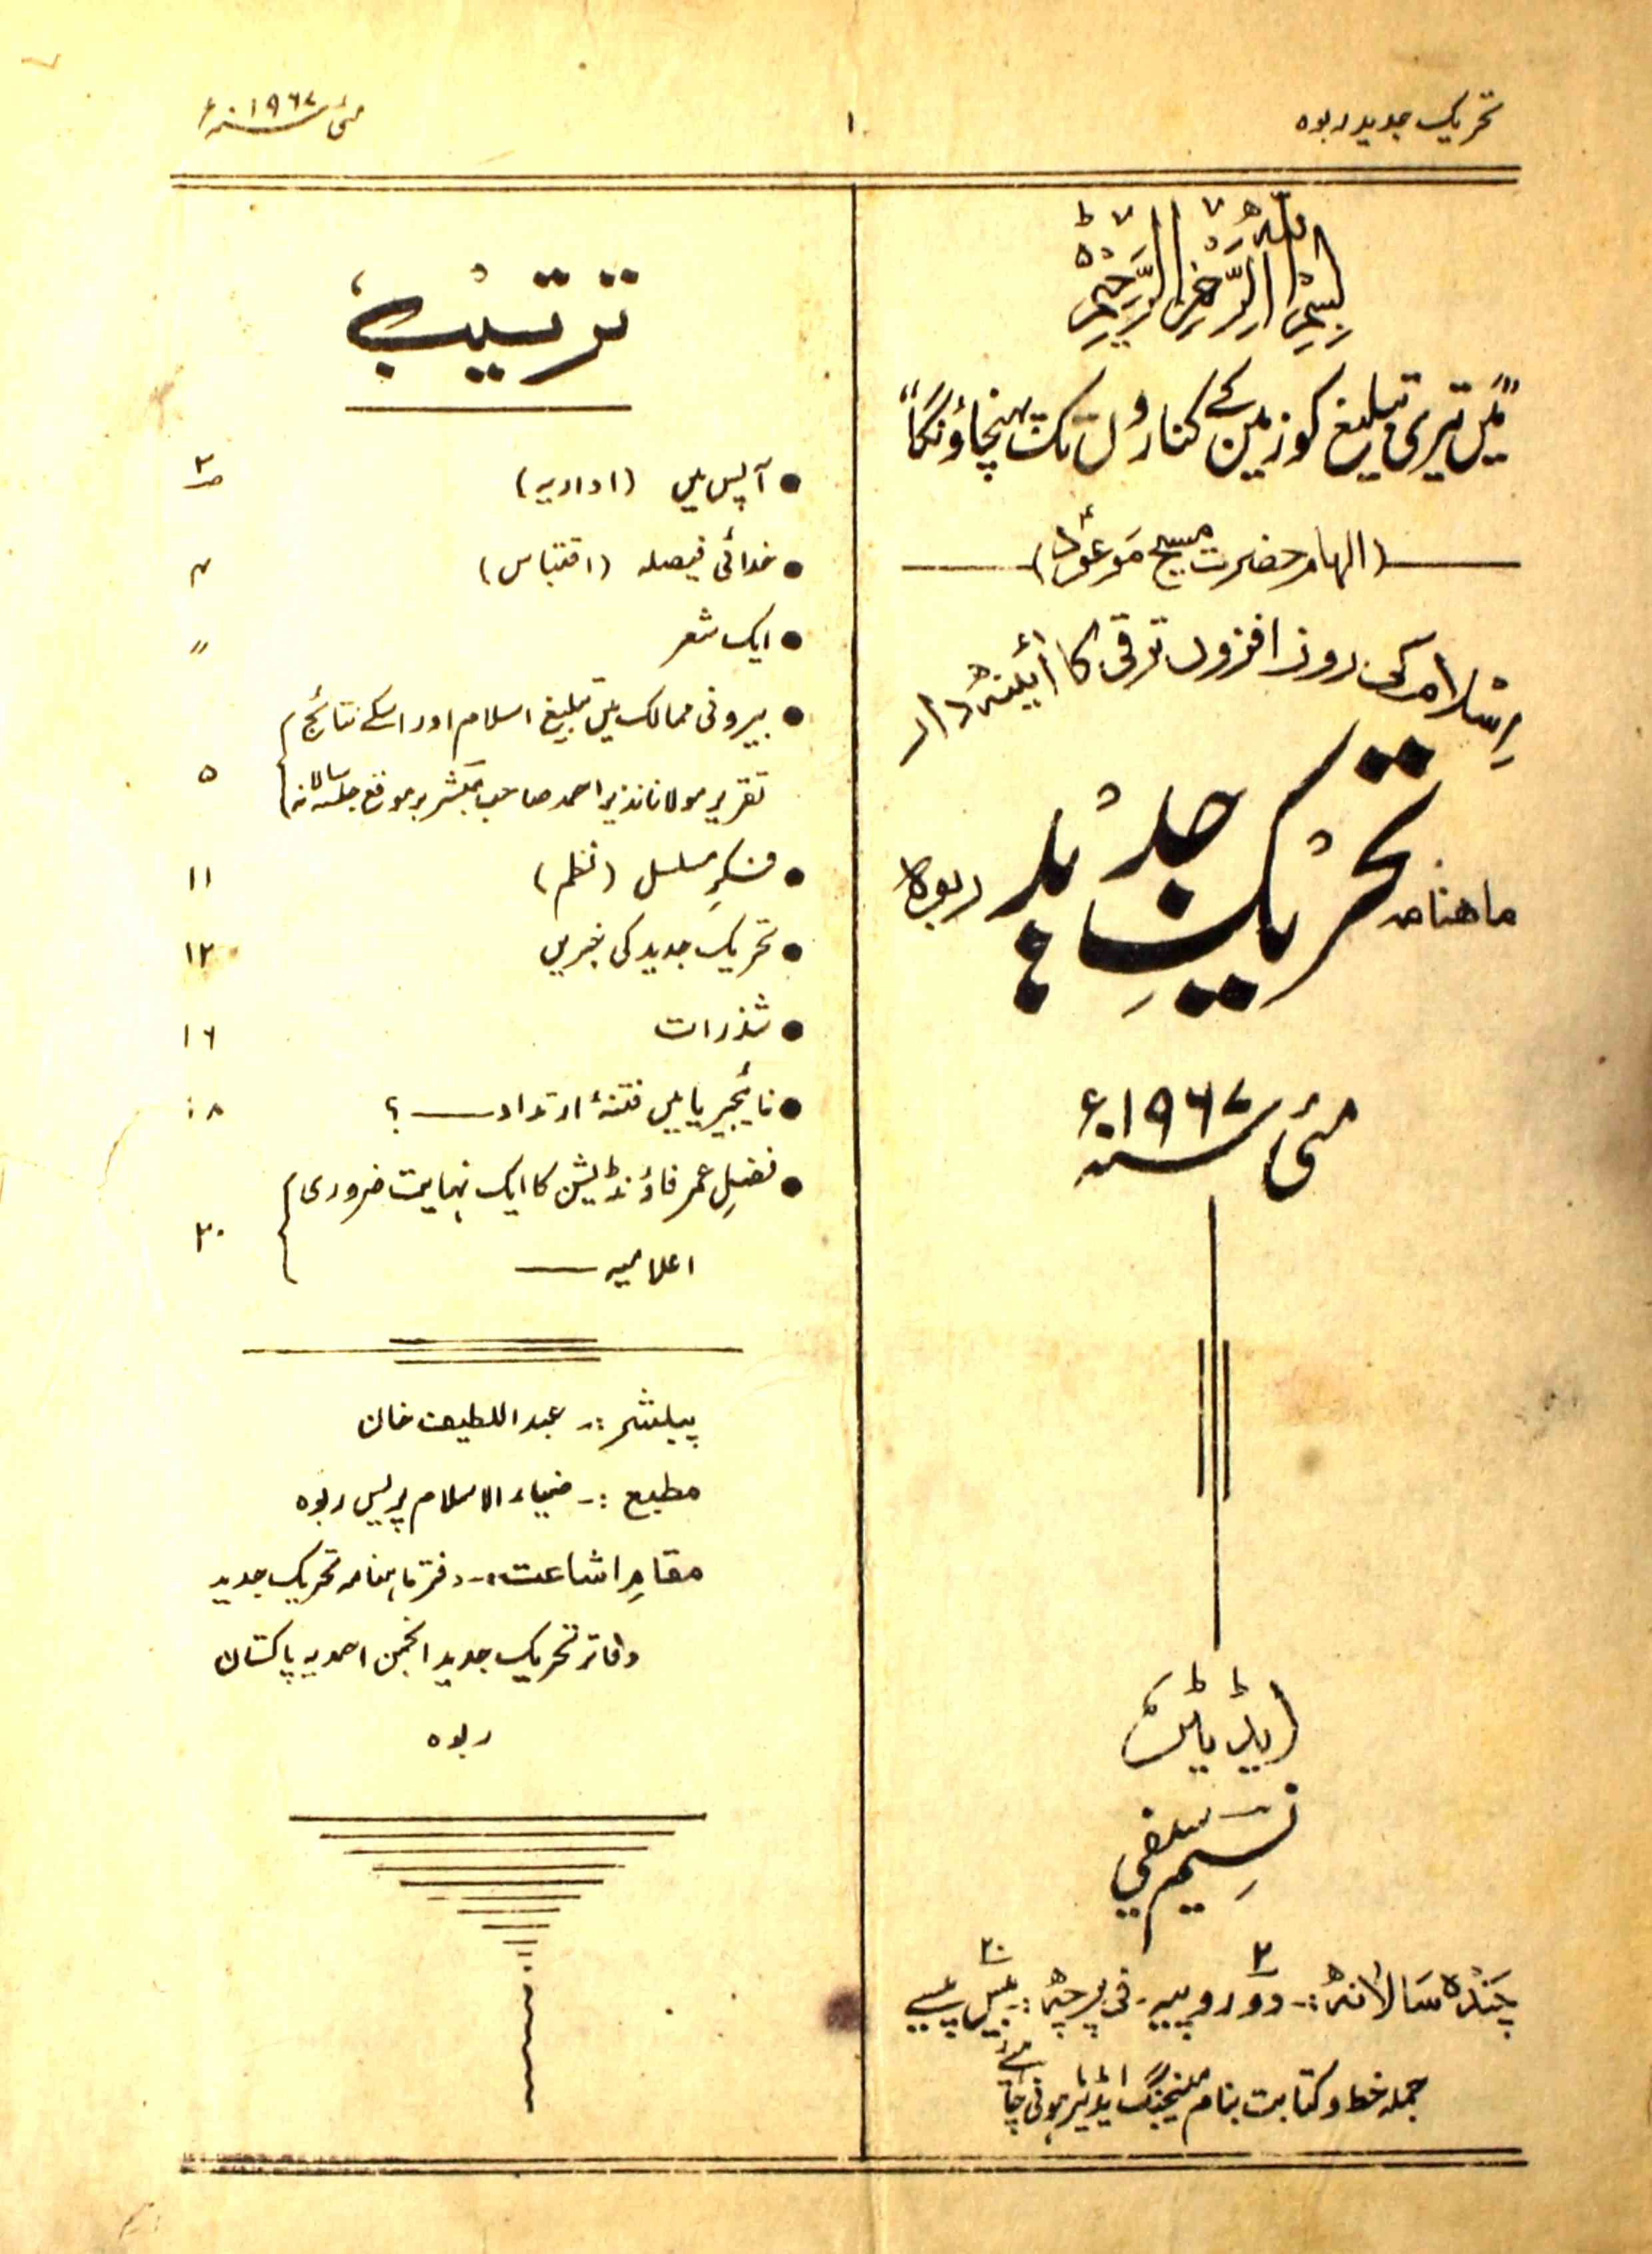 تحریک جدید ربوہ
۱
مئی ۱۹۶۷ء
بِسْمِ اللّٰهِ الرَّحْمٰنِ الرَّحِيْمِ
"مَیں تیری تبلیغ کو زمین کے کناروں تک پہنچاؤنگا"
(الہام حضرت مسیح موعودؑ)
اِسلام کی روز افزوں ترقی کا آئینہ دار
ماهنامہ تحریکِ جدید ربوہ
مئی ۱۹۶۷ء
ایڈیٹر
نسیم سیفی
چندہ سالانہ :- دو ۲ روپیہ - فی پرچہ :- بیس ۲۰ پیسے
جملہ خط و کتابت بنام مینیجنگ ایڈیٹر ہونی چاہئے
ترتیب
● آپس میں (اداریہ) ص۲
● خدائی فیصلہ (اقتباس) ۴
● ایک شعر "
● بیرونی ممالک میں تبلیغ اسلام اور اسکے نتائج
تقریر مولانا نذیر احمد صاحب مبشر برموقع جلسہ سالانہ ۵
● فکرِ مسلسل (نظم) ۱۱
● تحریک جدید کی خبریں ۱۲
● شذرات ۱۶
● نائیجیریا میں فتنۂ ارتداد —— ؟ ۱۸
● فضلِ عمر فاؤنڈیشن کا ایک نہایت ضروری
اعلامیہ —— ۲۰
پبلشر :- عبد اللطیف خان
مطبع :- ضیاء الاسلام پریس ربوہ
مقامِ اشاعت :- دفتر ماہنامہ تحریک جدید
دفاتر تحریک جدید انجمن احمدیہ پاکستان
ربوہ